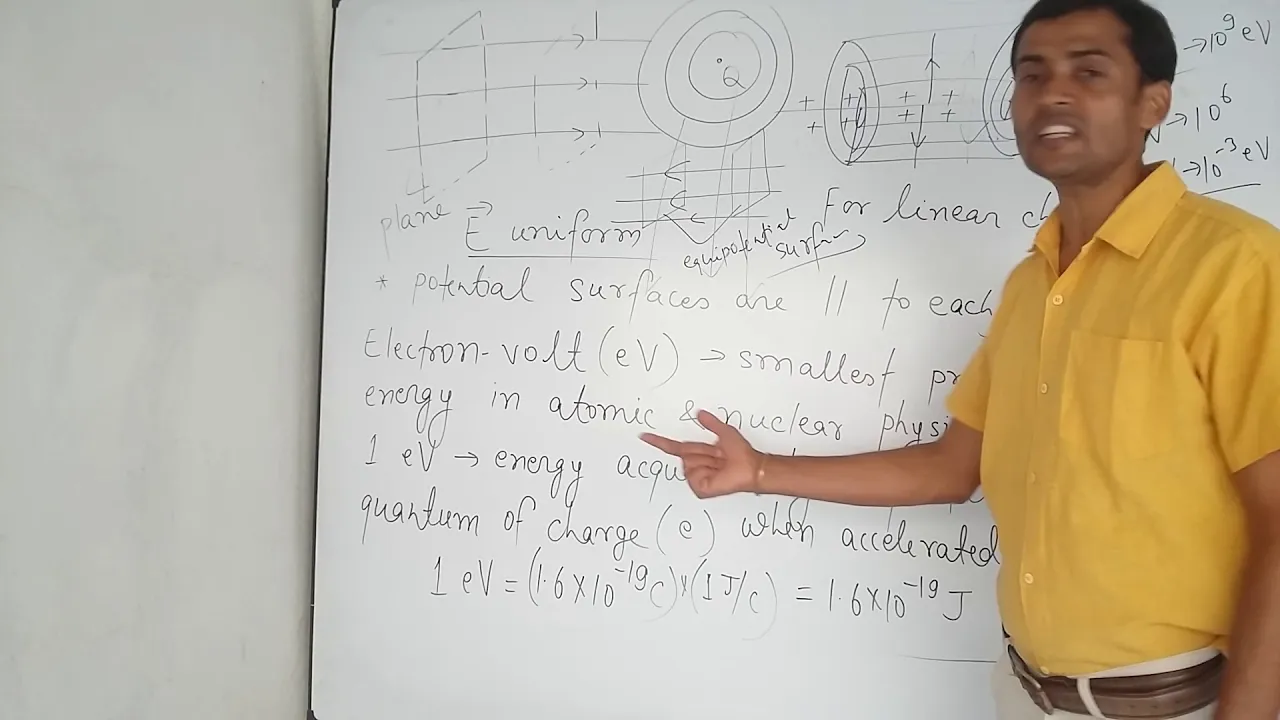 Q
→10⁹ eV
→10⁶
→10⁻³ eV
plane E⃗ uniform
equipotential
For linear
* potential surfaces are || to each
Electron-volt (eV) → smallest
energy in atomic & nuclear
1 eV → energy
quantum of charge (e) when accelerated
1 eV = (1.6×10⁻¹⁹C)×(1J/C) = 1.6×10⁻¹⁹ J